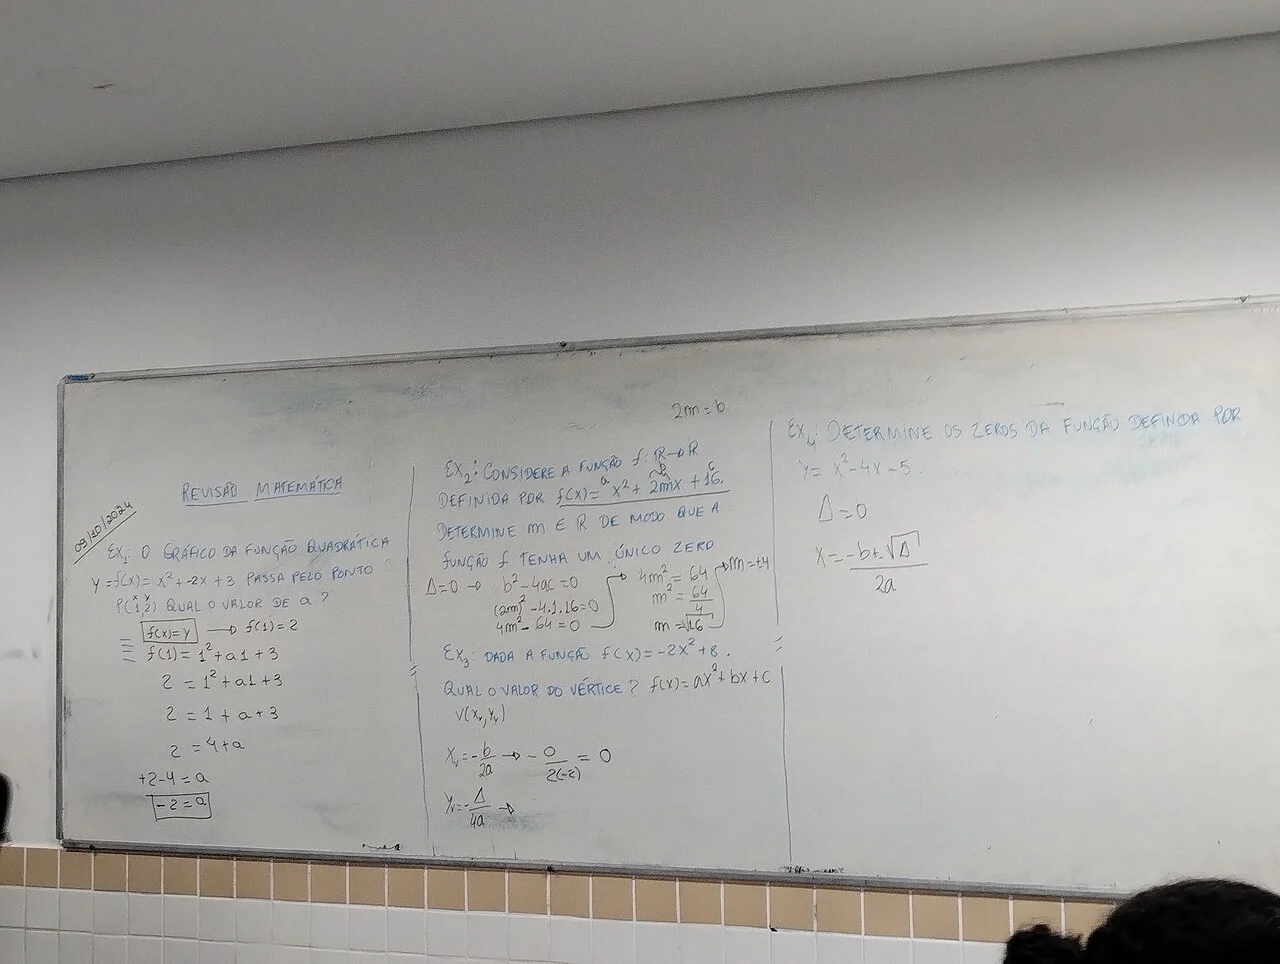 REVISÃO MATEMÁTICA
09/10/2024
EX1: O GRÁFICO DA FUNÇÃO QUADRÁTICA
y = f(x) = x² + -2x + 3 PASSA PELO PONTO
x y
P(1,2) QUAL O VALOR DE a ?
f(x) = y → f(1) = 2
f(1) = 1² + a1 + 3
2 = 1² + a1 + 3
2 = 1 + a + 3
2 = 4 + a
+2 - 4 = a
-2 = a
2m = b
EX2: CONSIDERE A FUNÇÃO f: R → R
a b c
DEFINIDA POR f(x) = x² + 2mx + 16.
DETERMINE m E R DE MODO QUE A
FUNÇÃO f TENHA UM ÚNICO ZERO
Δ = 0 → b² - 4ac = 0
(2m)² - 4.1.16 = 0
4m² - 64 = 0
4m² = 64
m² = 64/4
m = √16
m = ±4
EX3: DADA A FUNÇÃO f(x) = -2x² + 8.
QUAL O VALOR DO VÉRTICE ? f(x) = ax² + bx + c
V(Xv, Yv)
Xv = -b/2a → -0/2(-2) = 0
Yv = -Δ/4a →
EX4: DETERMINE OS ZEROS DA FUNÇÃO DEFINIDA POR
Y = X² - 4X - 5.
Δ = 0
X = -b ± √Δ/2a